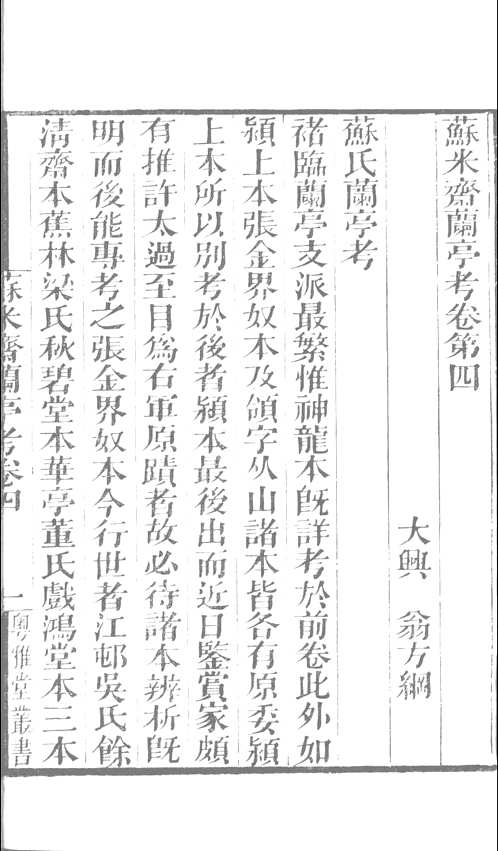 蘇米齋蘭亭考卷第四
大興　翁方綱
蘇氏蘭亭考
褚臨蘭亭支派最繁惟神龍本旣詳考於前卷此外如
潁上本張金界奴本及領字从山諸本皆各有原委潁
上本所以別考於後者潁本最後出而近日鑒賞家頗
有推許太過至目爲右軍原蹟者故必待諸本辨析旣
明而後能專考之張金界奴本今行世者江邨吳氏餘
淸齋本蕉林梁氏秋碧堂本華亭董氏戲鴻堂本三本
蘇米齋蘭亭考卷四　一　粵雅堂叢書